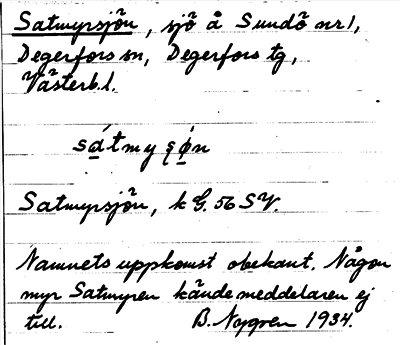 Satmyrsjön, sjö å Sundö nr 1,
Degerfors sn, Degerfors tg,
Västerb. l.
sa̱tmyʂø̱n
Satmyrsjön, k G. 56 SV.
Namnets uppkomst obekant. Någon
myr Satmyren kände meddelaren ej
till. B. Nygren 1934.